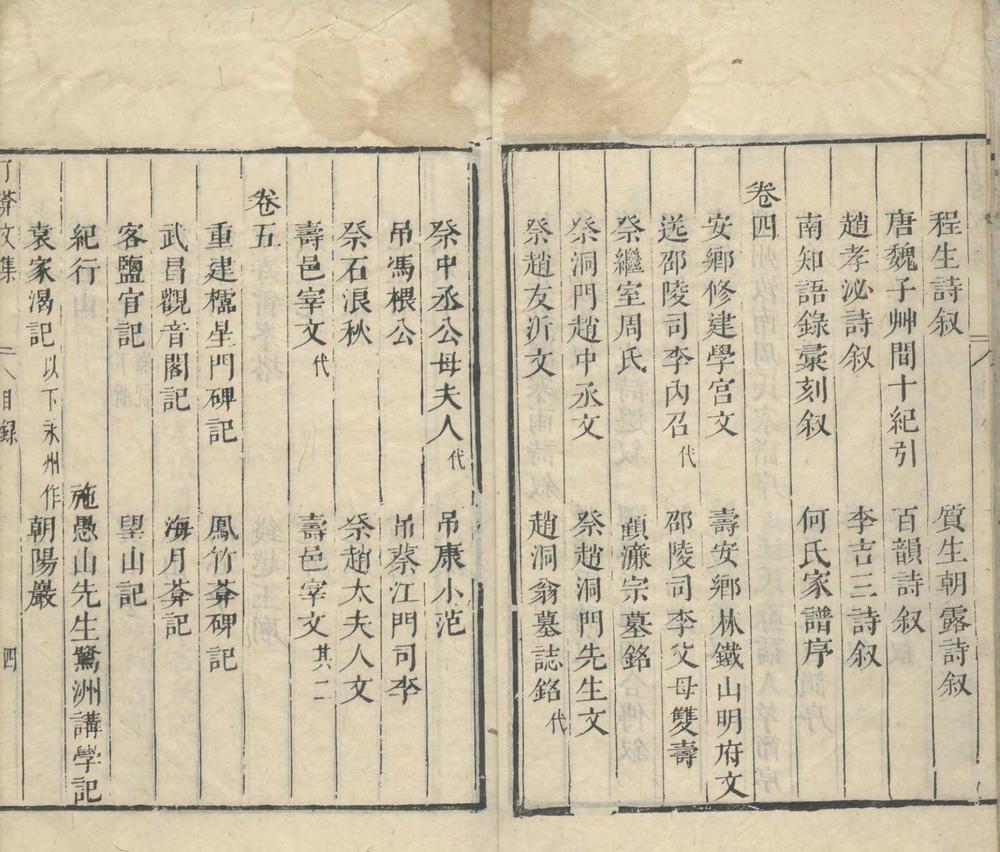 程生詩叙　質生朝露詩叙
唐魏子艸間十紀引　百韻詩叙
趙孝泌詩叙　李吉三詩叙
南知語錄彙刻叙　何氏家譜序
卷四
安鄉修建學宮文　壽安鄉林鐵山明府文
送邵陵司李內召代　邵陵司李父母雙壽
祭繼室周氏　顧濂宗墓銘
祭洞門趙中丞文　祭趙洞門先生文
祭趙友沂文　趙洞翁墓誌銘代
祭中丞公母夫人代　吊康小范
吊馮根公　吊蔡江門司李
祭石浪秋　祭趙太夫人文
壽邑宰文代　壽邑宰文其二
卷五
重建櫺星門碑記　鳳竹菴碑記
武昌觀音閣記　海月菴記
客鹽官記　望山記
紀行山　施愚山先生鷺洲講學記
袁家渴記以下永州作　朝陽巖
了菴文集　目錄　四